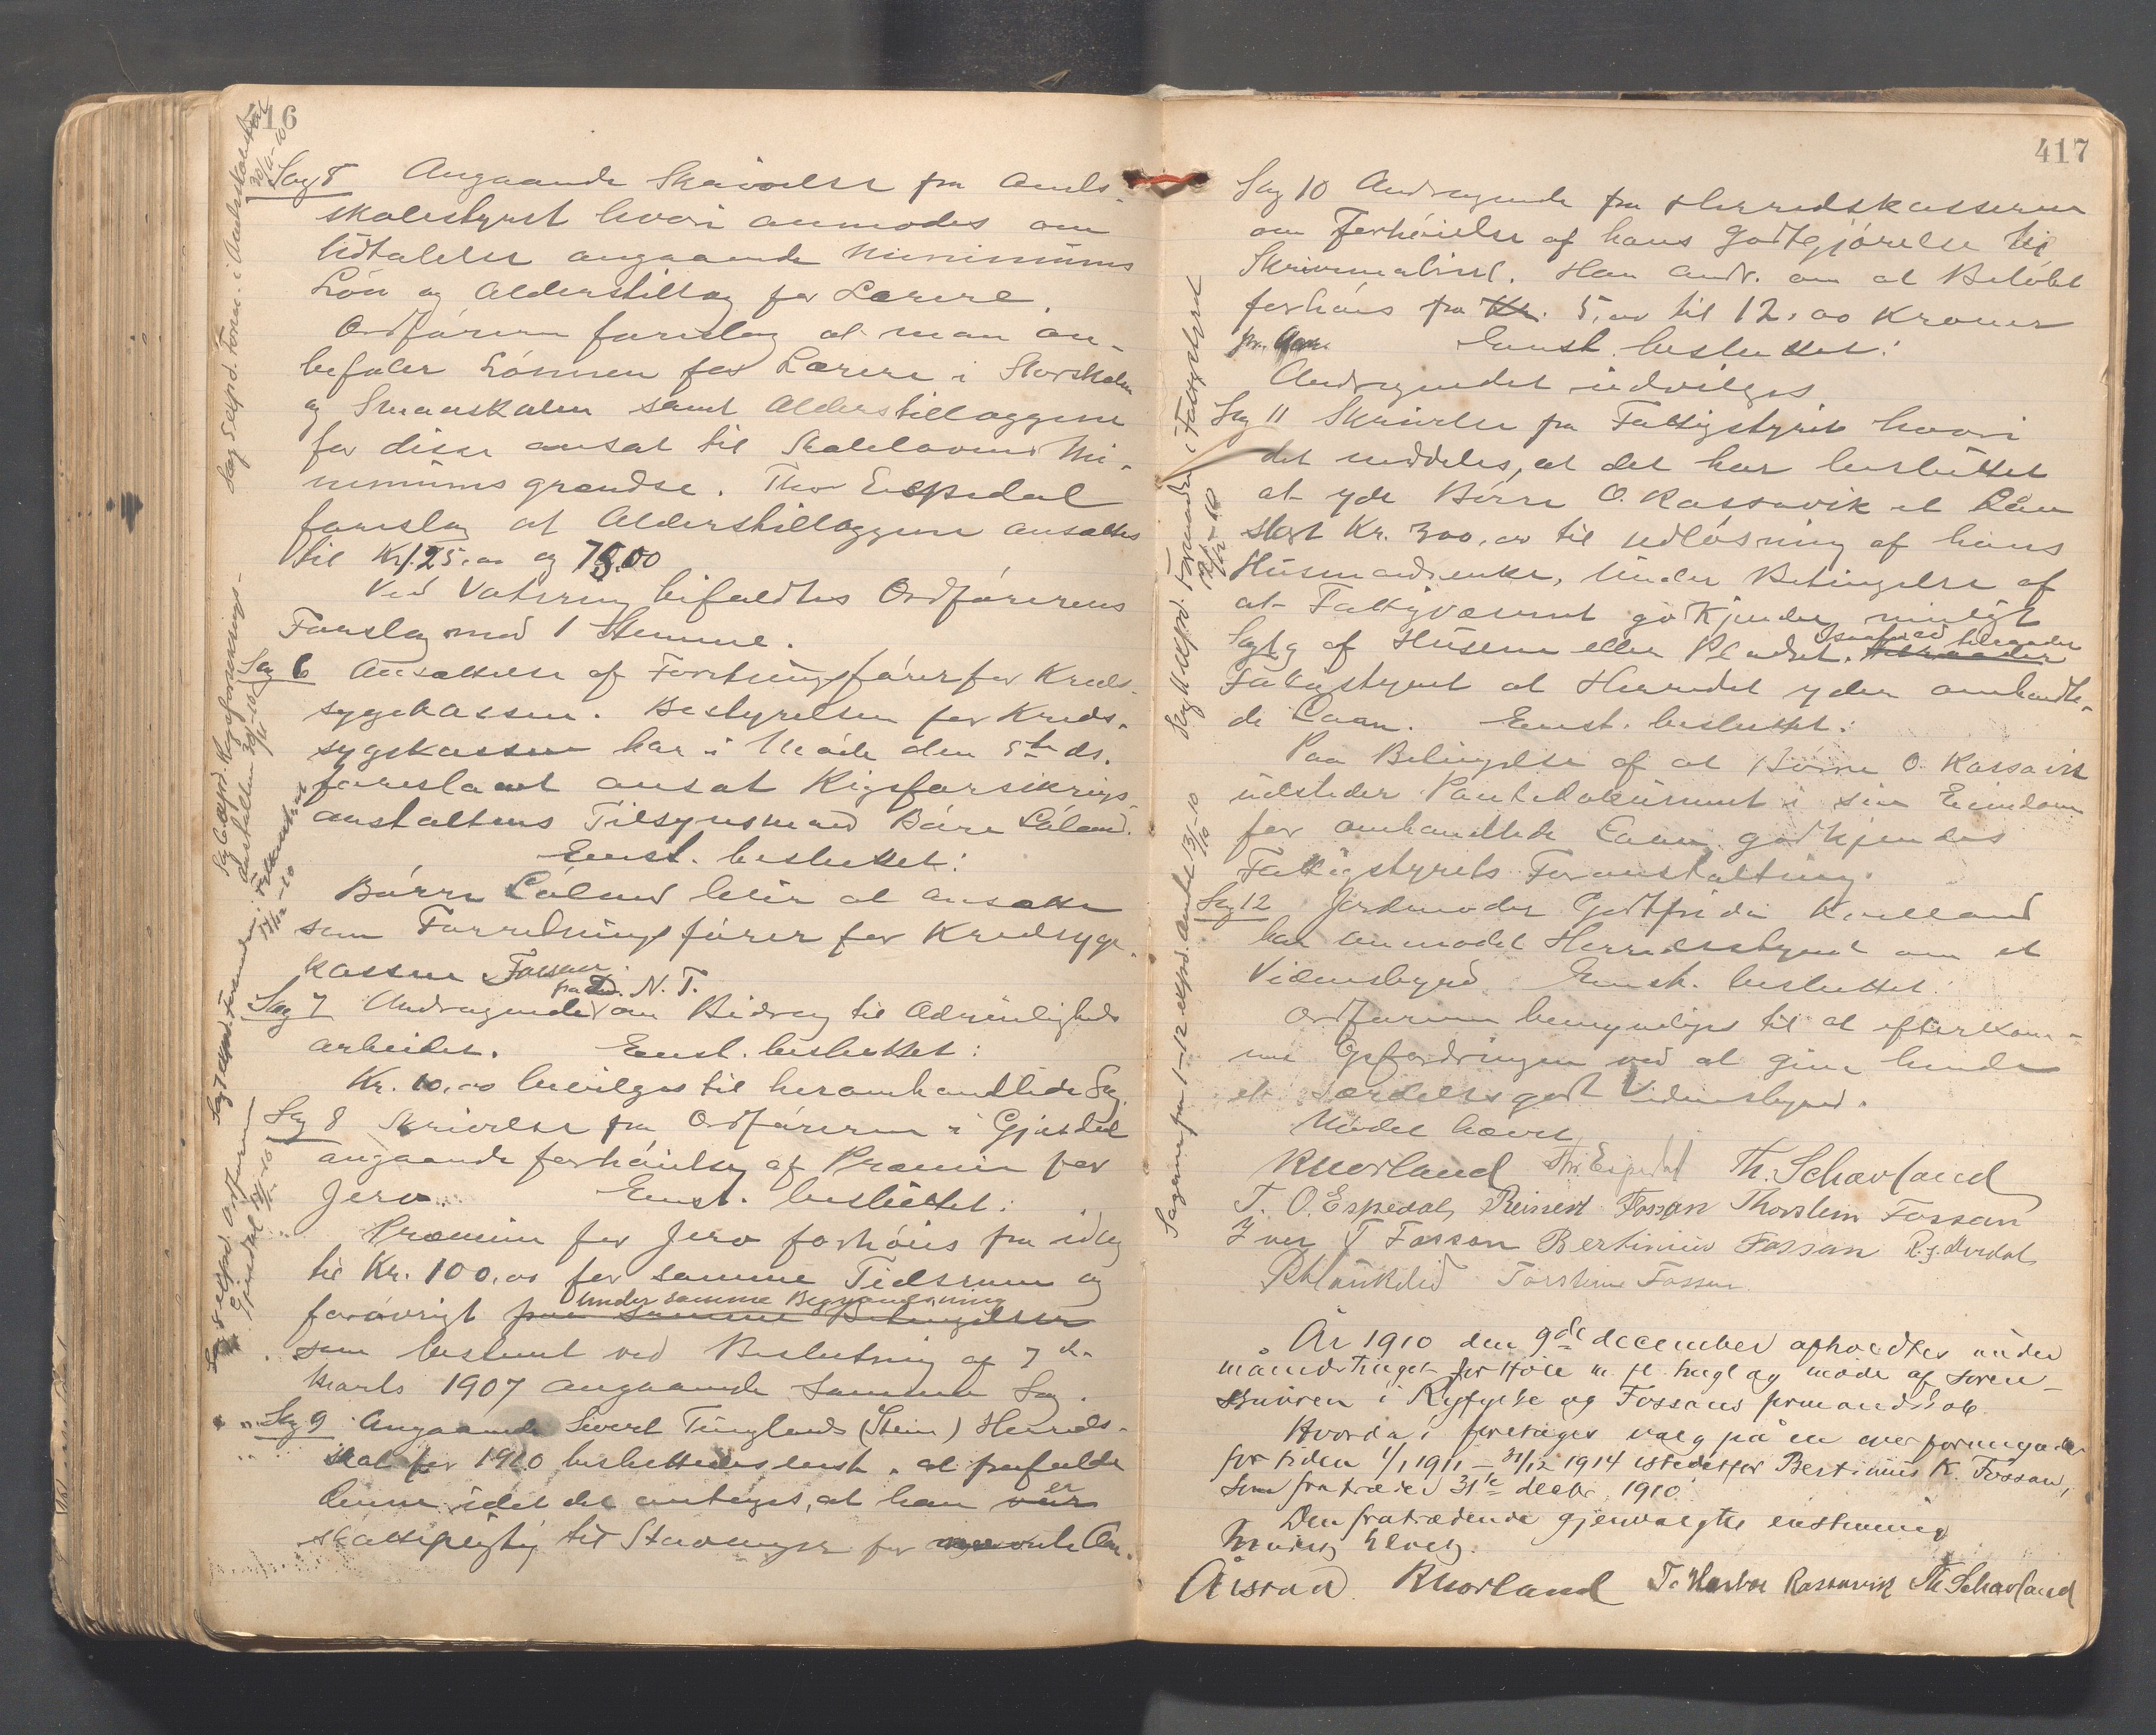 16
Sag 5 Angaaende Skrivelse fra Amts-
skolestyret hvori anmodes om
Udtalelse angaaende Minimums
Løn og Alderstillæg for Lærere.
Ordføreren foreslog at man an-
befaler Lønnen for Lærere i Storskolen
og Smaaskolen samt Alderstillæggene
for disse ansat til Skolelovens Mi-
nimums grændse. Thor Espedal
foreslog at Alderstillæggene ansættes
til Kr 125.00 og 75.00
Ved Votering bifaldtes Ordførerens
Forslag med 1 Stemme.
Sag 6 Ansættelse af Forretningsfører for Kreds-
sygekassen. Bestyrelsen for Kreds-
sygekassen har i Møde den 5te ds.
foreslaaet ansat Rigsforsikrings-
anstaltens Tilsynsmand Børe Løland.
Enst. besluttet:
Børre Løland blir at ansætte
som Forretningsfører for Kredssyge-
kassen Fossan.
Sag 7 Andragende fra D. N. T. om Bidrag til Ædrueligheds
arbeidet. Enst. besluttet:
Kr. 10.00 bevilges til heromhandlede Sag.
Sag 8 Skrivelse fra Ordføreren i Gjesdal
angaaende forhøielse af Præmien for
Jerv. Enst. besluttet:
Præmien for Jerv forhøies fra idag
til Kr. 100.00 for samme Tidsrum og
forøvrigt paa samme Betingelser under samme Begrændsning
som bestemt ved Beslutning af 7de
Marts 1907 angaaende samme Sag.
Sag 9 Angaaende Sivert Tunglands (Stein) Herreds-
skat for 1910 besluttedes enst. at frafalde
denne idet det antages, at han var er
skattepligtig til Stavanger for nævnte Aar.
Sag 5 expd. Form. i Amtsskolestyret
30/11-10
Sag 6 expd. Rigsforsikrings-
anstalten 30/11-10
Sag 7 expd. Formanden i Totalavholdsl.
17/12-10
Sag 8 expd. Ordføreren
Gjesdal
417
Sag 10 Andragende fra Herredskasserer
om Forhøielse af hans Godtgjørelse til
Skrivemateriel. Han andr. om at Beløbet
forhøies fra Kr. 5.00 til 12.00 Kroner
pr. Aar. Enst. besluttet:
Andragendet indvilges
Sag 11 Skrivelse fra Fattigstyret hvori
det meddeles, at det har besluttet
at yde Børre O. Rossavik et Lån
stort Kr. 300.00 til udløsning af hans
Husmandsenke, under Betingelse af
at Fattigvæsenet godkjender muligt
Salg af Husene eller Pladset. Isaafald tilraader
Fattigstyret at Herredet yder omhandle-
de Laan. Enst. besluttet:
Paa Betingelse af at Børre O. Rossavik
udsteder Pantedokument i sin Eiendom
for omhandlede Laan godkjendes
Fattigstyrets Foranstaltning.
Sag 12 Jordmoder Gotfrida Kvelland
har anmodet Herredsstyret om et
Vidnesbyrd. Enst. besluttet:
Ordføreren bemyndiges til at efterkom-
me Opfordringen ved at give hende
et særdeles godt Vidnesbyrd.
Mødet hævet
R Norland Thr Espedal Th. Schavland
T. O. Espedal, Reinert Fossan Thorstein Fossan
Iver T Fossan Bertinius Fossan R. J. Nordal
Torstein Fossan
Sag 11 expd. Formanden i Fattigstyret
12/12-10
Sagerne fra 1-12 expd. Amtet 13/12-10
År 1910 den 9de december afholdtes under
månedstinget for Høle m. fl. tingl. og møde af soren-
skriveren i Ryfylke og Fossans formandskab
Hvorda i foretages valg på en overformynder
for tiden 1/1 1911 – 31/12 1914 istedetfor Bertinius K. Fossan,
som fratræder 31te decbr. 1910.
Den fratrædende gjenvalgtes enstemmig
Mødet hævet.
Årstad. R Norland T. Rossavik Th. Schavland